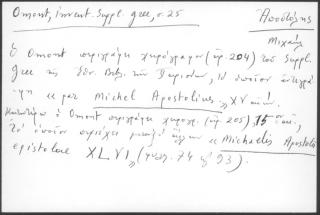 Omont, Invent. Suppl. grec, σ. 25
Ἀποστόλης
Μιχαήλ
Ὁ Omont περιγράφει χειρόγραφον (ἀρ. 204) τοῦ Suppl.
Grec τῆς Ἐθν. Βιβ. τῶν Παρισίων, τὸ ὁποῖον ἀντεγρά-
φη « par Michel Apostolius » XV αἰών.
ὁ Omont περιγράφει χειρόγρ. (ἀρ. 205) 15 αἰών.,
Τὸ ὁποῖον περιέχει μεταξὺ ἄλλων « Michaelis Apostoli
epistolae XLVI » (φύλλ. 74 93).